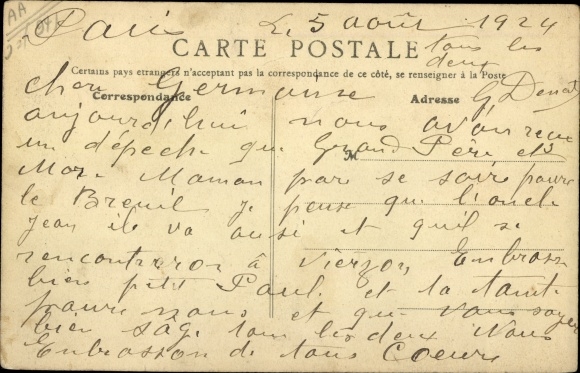 AA
Paris Le 5 août 1924
CARTE POSTALE
tous les
deux
Certains pays etrangers n'acceptant pas la correspondance de ce côté, se renseigner à la Poste
Correspondance
Adresse
cher Germaine
G Denat
aujourd'hui nous avon reçu
un dépeche que Grand Père et
M
Maman pare se soire pour
le Breuil je pense que l'oncle
Jean ile va ausi et qu'il se
rencontreron à Vierzon Embrass
bien petit Paul et ta tante
pour nous et que vous soyez
bien sage tous les deux Nous
Enbrasson de tous Coeurs